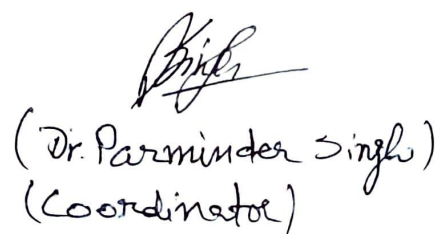 (Dr. Parminder Singh)
(Coordinator)